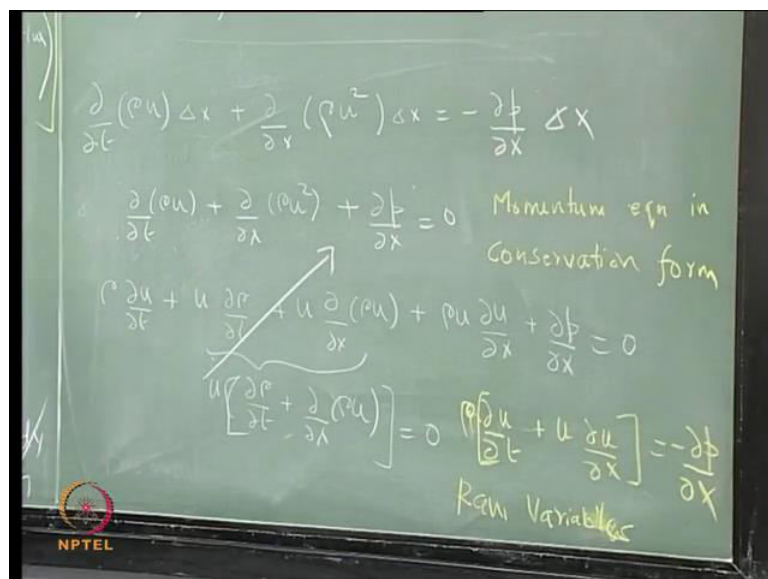 ∂/∂t (ρu) Δx + ∂/∂x (ρu²) Δx = - ∂p/∂x Δx
∂/∂t (ρu) + ∂/∂x (ρu²) + ∂p/∂x = 0 Momentum eqn in
Conservation form
ρ ∂u/∂t + u ∂ρ/∂t + u ∂/∂x (ρu) + ρu ∂u/∂x + ∂p/∂x = 0
u[∂ρ/∂t + ∂/∂x (ρu)] = 0 ρ[∂u/∂t + u ∂u/∂x] = -∂p/∂x
Variables
NPTEL